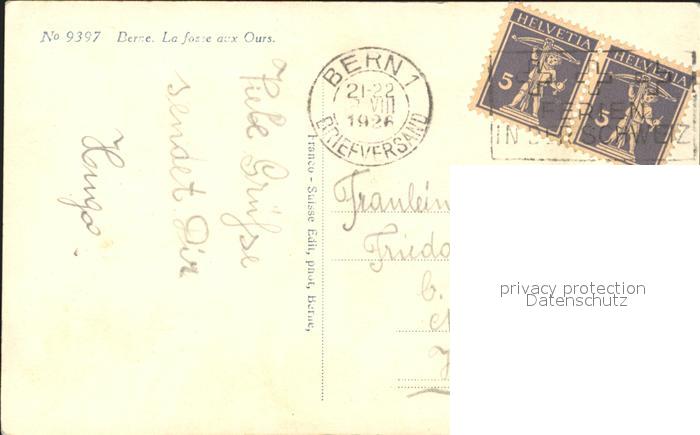 No 9397 Berne. La fosse aux Ours.
Viele Grüsse
sendet Dir
Hugo.
Franco-Suisse Edit, phot, Berne,
BERN 1
21-22
VIII
1926
BRIEFVERSAND
HELVETIA
5
HELVETIA
5
FERIEN
IN DER SCHWEIZ
Fräulein
Frieda
b.
privacy protection
Datenschutz